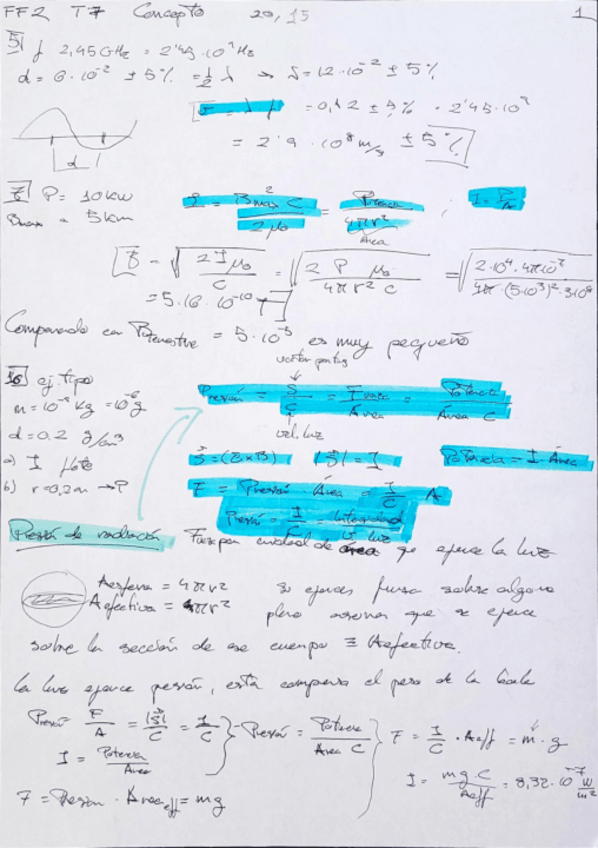 FF2 T7 Concepto 20, 15 1
5 f 2,45 GHz = 2'45·10⁹ Hz
d = 6·10⁻² ± 5% = ½ λ → λ = 12·10⁻² ± 5%
= 0,12 ± 5% · 2'45·10⁹
d
= 2'9 · 10⁸ m/s ± 5%
P = 10 kW
= 5 km
I = Bmax² C / 2 μ₀ = Potencia / 4πr² ; I = P/A
Área
B = √(2 I μ₀ / C) = √(2 P μ₀ / 4πr² C) = √(2·10⁴·4π10⁻⁷ / 4π·(5·10³)²·3·10⁸)
= 5.16·10⁻¹⁰ T
Comparando con Bterrestre = 5·10⁻⁵ es muy pequeño
16 ej. tipo
vector poyting
m = 10⁻⁹ kg = 10⁻⁶ g
Presión = S/C = I / = Potencia / Área C
vel. luz
d = 0.2 g/cm³
a) I
S = (E×B) |S| = I Potencia = I · Área
b) r = 0,2 m → P
F = Presión · Área = I/C A
Presión = I/C = Intensidad / luz
Presión de radiación Fuerza por unidad de área que ejerce la luz
Aesfera = 4πr² Si ejerces fuerza sobre algún
Aefectiva = πr² plano asumes que se ejerce
sobre la sección de ese cuerpo ≡ Aefectiva.
La luz ejerce presión, esta compensa el peso de la
Presión F/A = |S|/C = I/C Presión = Potencia / Área C F = I/C · Aeff = m · g
I = Potencia / Área
I = m g C / Aeff = 8,32·10⁻⁷ W/m²
F = Presión · Área eff = mg